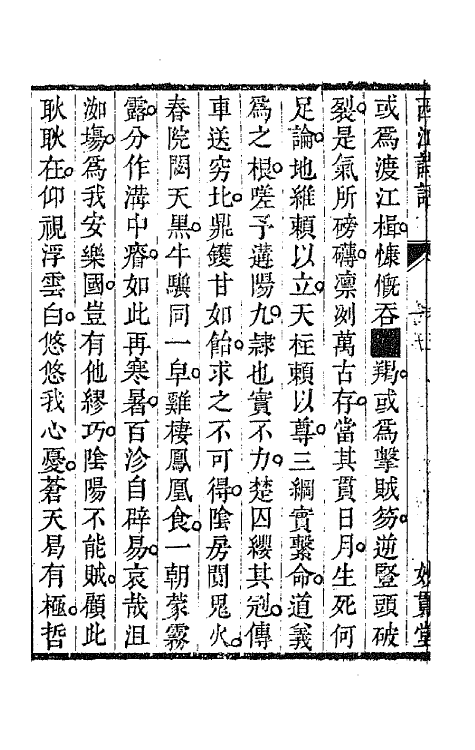 西江詩話 妙貫堂
或爲渡江楫。慷慨吞■羯。或爲擊賊笏。逆豎頭破
裂。是氣所磅礴。凛冽萬古存。當其貫日月。生死何
足論。地維賴以立。天柱賴以尊。三綱實繫命。道義
爲之根。嗟予遘陽九。隷也實不力。楚囚纓其冠。傳
車送窮北。鼎鑊甘如飴。求之不可得。隂房闃鬼火。
春院閟天黑。牛驥同一皁。雞棲鳳凰食。一朝蒙霧
露。分作溝中瘠。如此再寒暑。百沴自辟易。哀哉沮
洳塲。爲我安樂國。豈有他繆巧。隂陽不能賊。顧此
耿耿在。仰視浮雲白。悠悠我心憂。蒼天曷有極。哲